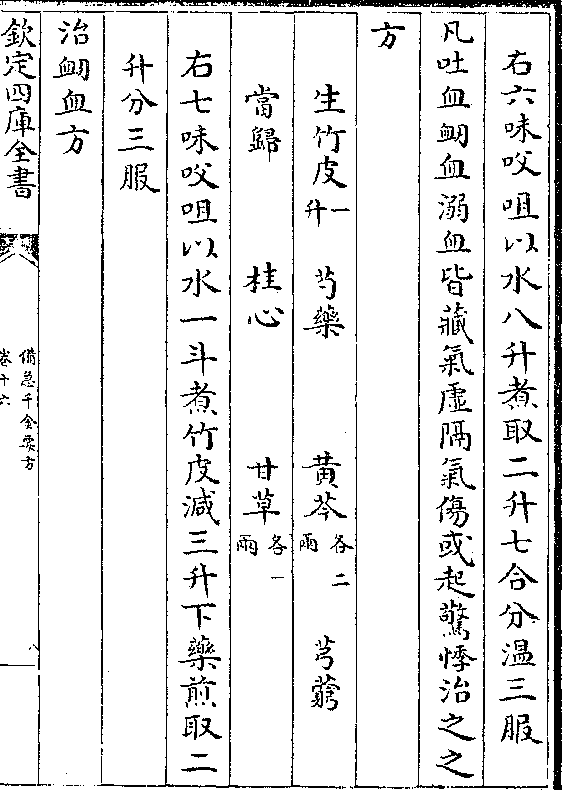 右六味㕮咀以水八升煮取二升七合分溫三服
凡吐血衂血溺血皆藏氣虛膈氣傷或起驚悸治之之
方
生竹皮一升 芍藥 黃芩各二兩 芎藭
當歸 桂心 甘草各一兩
右七味㕮咀以水一斗煮竹皮減三升下藥煎取二
升分三服
治衂血方
欽定四庫全書
備急千金要方
卷十六
八